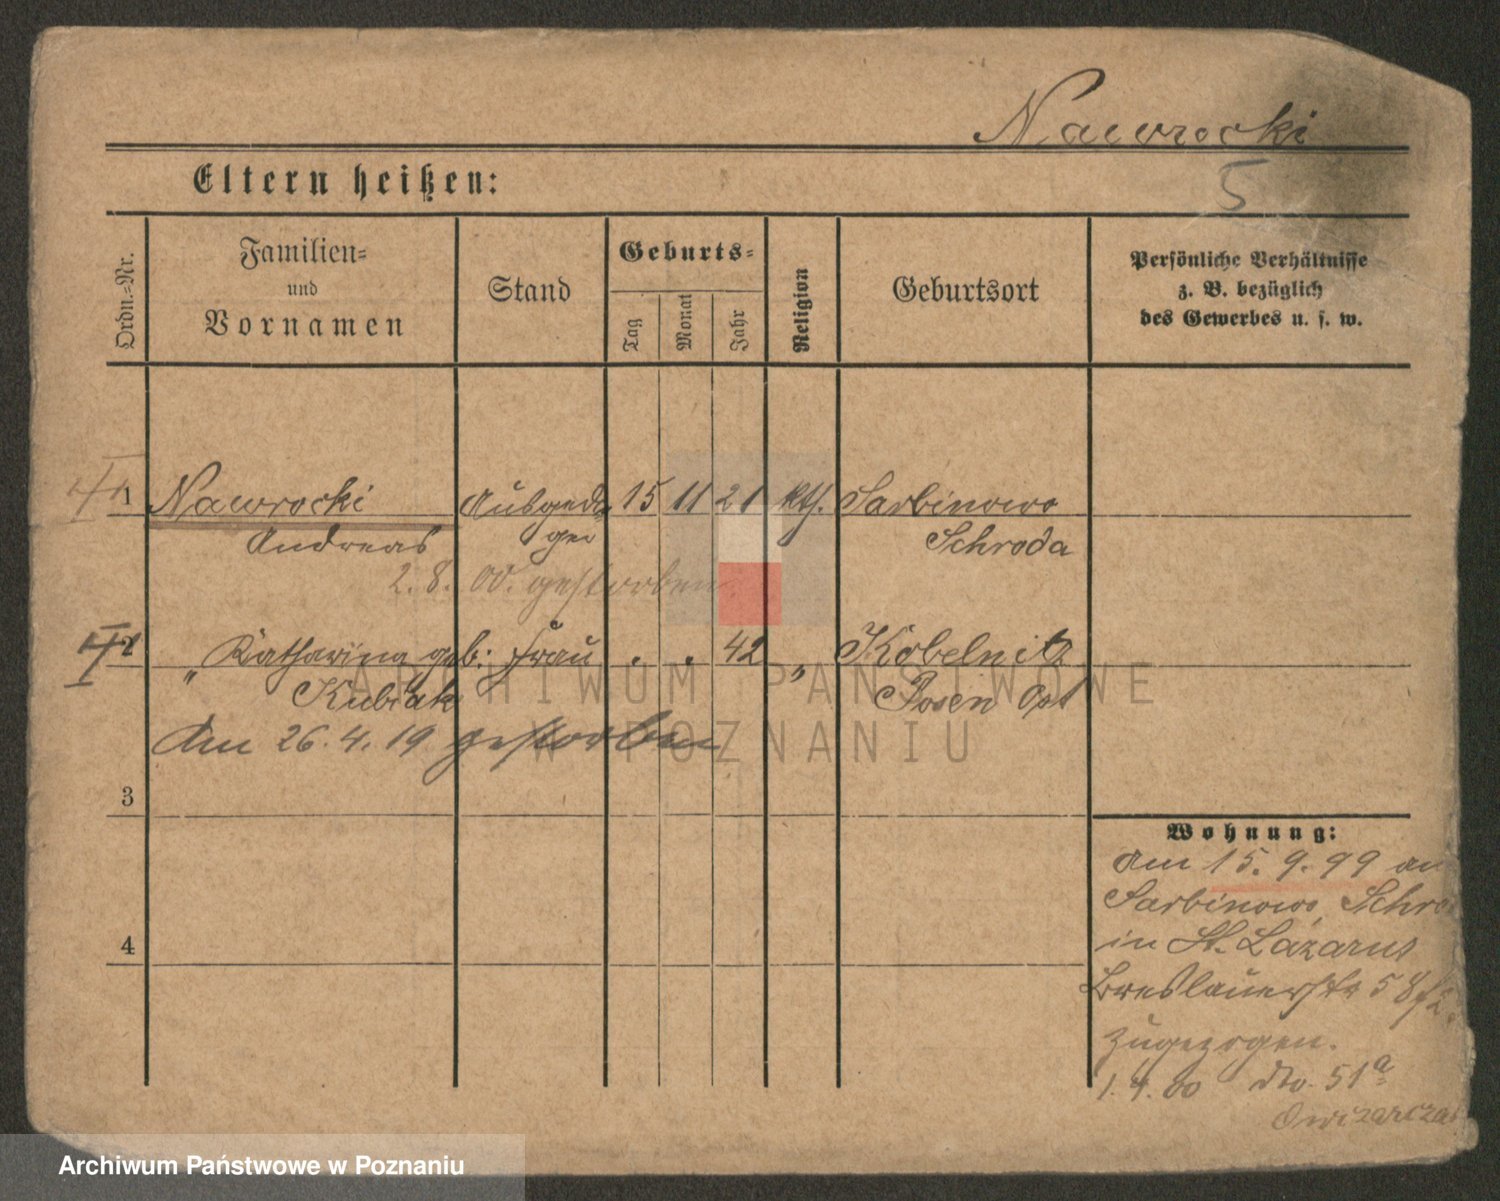 Nawrocki
Eltern heißen:
5
Ordn.-Nr.
Familien-
und
Vornamen
Stand
Geburts-
Tag
Monat
Jahr
Religion
Geburtsort
Persönliche Verhältnisse
z. B. bezüglich
des Gewerbes u. s. w.
1 Nawrocki Ausgedin 15 11 21 kth. Sarbinowo
Andreas ger Schroda
2. 8. 00. gestorben
2 " Katharina geb. Frau . . 42 " Kobelnitz
Kubiak Posen Ost
Am 26. 4. 19 gestorben
3
Wohnung:
Am 15. 9. 99 au
Sarbinowo, Schro
4
in St. Lazarus
Breslauerstr 58
zugezogen.
1. 4. 00 dto. 51a
Owczarczak
ARCHIWUM PAŃSTWOWE
W POZNANIU
Archiwum Państwowe w Poznaniu